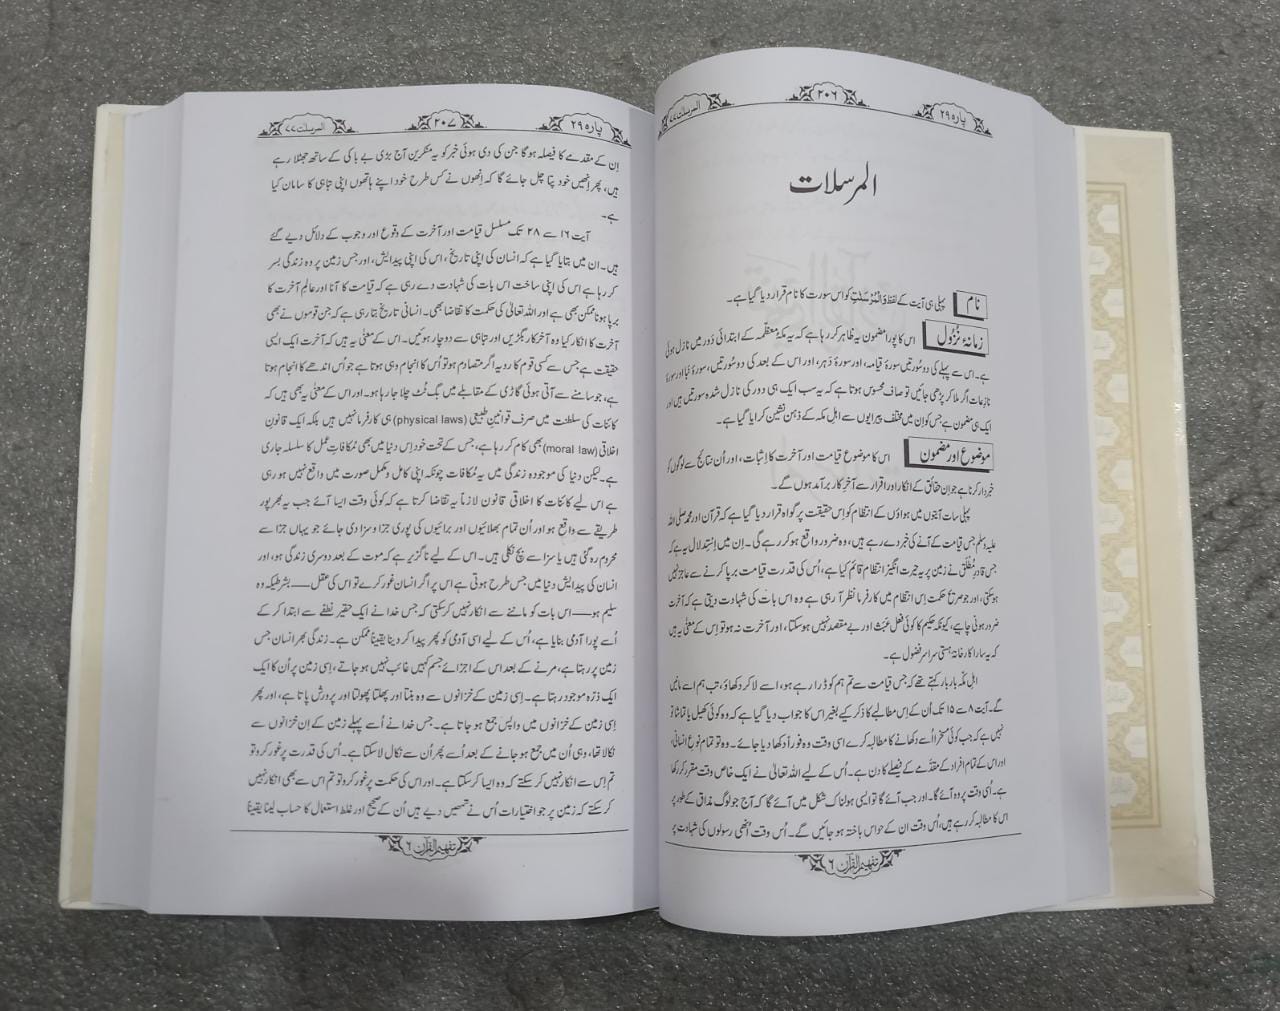 پارہ ۲۹
۲۰۶
المرسلت ۷۷
المرسلات
نام پہلی ہی آیت کے لفظ وَالْمُرْسَلٰتِ کو اس سورت کا نام قرار دیا گیا ہے۔
زمانۂ نزُول اس کا پورا مضمون یہ ظاہر کر رہا ہے کہ یہ مکۂ معظمہ کے ابتدائی دَور میں نازل ہوئی
ہے۔ اس سے پہلے کی دو سُورتیں سورۂ قیامہ، اور سورۂ دَہر، اور اس کے بعد کی دو سُورتیں، سورۂ نَبا اور سورۂ
نازعات اگر ملا کر پڑھی جائیں تو صاف محسوس ہوتا ہے کہ یہ سب ایک ہی دور کی نازل شدہ سورتیں ہیں اور
ایک ہی مضمون ہے جس کو اِن میں مختلف پیرایوں سے اہلِ مکہ کے ذہن نشین کرایا گیا ہے۔
موضوع اور مضمون اس کا موضوع قیامت اور آخرت کا اِثبات، اور اُن نتائج سے لوگوں کو
خبردار کرنا ہے جو اِن حقائق کے انکار اور اقرار سے آخرِ کار برآمد ہوں گے۔
پہلی سات آیتوں میں ہواؤں کے انتظام کو اِس حقیقت پر گواہ قرار دیا گیا ہے کہ قرآن اور محمد صلی اللہ
علیہ وسلم جس قیامت کے آنے کی خبر دے رہے ہیں، وہ ضرور واقع ہو کر رہے گی۔ اِن میں اِستدلال یہ ہے کہ
جس قادرِ مُطْلَق نے زمین پر یہ حیرت انگیز انتظام قائم کیا ہے، اُس کی قدرت قیامت برپا کرنے سے عاجز نہیں
ہو سکتی، اور جو صریح حکمت اِس انتظام میں کارفرما نظر آ رہی ہے وہ اس بات کی شہادت دیتی ہے کہ آخرت
ضرور ہونی چاہیے، کیونکہ حکیم کا کوئی فعل عَبَث اور بے مقصد نہیں ہو سکتا، اور آخرت نہ ہو تو اِس کے معنٰی یہ ہیں
کہ یہ سارا کارخانۂ ہستی سراسر فضول ہے۔
اہلِ مکّہ بار بار کہتے تھے کہ جس قیامت سے تم ہم کو ڈرا رہے ہو، اسے لا کر دکھاؤ، تب ہم اسے مانیں
گے۔ آیت ۸ سے ۱۵ تک اُن کے اِس مطالبے کا ذکر کیے بغیر اس کا جواب دیا گیا ہے کہ وہ کوئی کھیل یا تماشا تو
نہیں ہے کہ جب کوئی مسخرا اُسے دکھانے کا مطالبہ کرے اسی وقت وہ فوراً دکھا دیا جائے۔ وہ تو تمام نوع انسانی،
اور اس کے تمام افراد کے مقدّمے کے فیصلے کا دن ہے۔ اُس کے لیے اللہ تعالیٰ نے ایک خاص وقت مقرر کر رکھا
ہے۔ اُسی وقت پر وہ آئے گا۔ اور جب آئے گا تو ایسی ہولناک شکل میں آئے گا کہ آج جو لوگ مذاق کے طور پر
اس کا مطالبہ کر رہے ہیں، اُس وقت ان کے حواس باختہ ہو جائیں گے۔ اُس وقت اُنھی رسولوں کی شہادت پر
تفہیم القرآن ۶
پارہ ۲۹
۲۰۷
المرسلت ۷۷
اِن کے مقدمے کا فیصلہ ہوگا جن کی دی ہوئی خبر کو یہ منکرین آج بڑی بے باکی کے ساتھ جھٹلا رہے
ہیں، پھر اِنھیں خود پتا چل جائے گا کہ اِنھوں نے کس طرح خود اپنے ہاتھوں اپنی تباہی کا سامان کیا
ہے۔
آیت ۱۶ سے ۲۸ تک مسلسل قیامت اور آخرت کے وقوع اور وجوب کے دلائل دیے گئے
ہیں۔ ان میں بتایا گیا ہے کہ انسان کی اپنی تاریخ، اس کی اپنی پیدایش، اور جس زمین پر وہ زندگی بسر
کر رہا ہے اس کی اپنی ساخت اس بات کی شہادت دے رہی ہے کہ قیامت کا آنا اور عالمِ آخرت کا
برپا ہونا ممکن بھی ہے اور اللہ تعالیٰ کی حکمت کا تقاضا بھی۔ انسانی تاریخ بتا رہی ہے کہ جن قوموں نے بھی
آخرت کا انکار کیا وہ آخرِ کار بگڑیں اور تباہی سے دوچار ہوئیں۔ اس کے معنٰی یہ ہیں کہ آخرت ایک ایسی
حقیقت ہے جس سے کسی قوم کا رویہ اگر متصادم ہو تو اُس کا انجام وہی ہوتا ہے جو اُس اندھے کا انجام ہوتا
ہے، جو سامنے سے آتی ہوئی گاڑی کے مقابلے میں بگ ٹٹ چلا جا رہا ہو۔ اور اس کے معنٰی یہ بھی ہیں کہ
کائنات کی سلطنت میں صرف قوانینِ طبیعی (physical laws) ہی کارفرما نہیں ہیں بلکہ ایک قانونِ
اخلاقی (moral law) بھی کام کر رہا ہے، جس کے تحت خود اِس دنیا میں بھی مُکافاتِ عمل کا سلسلہ جاری
ہے۔ لیکن دنیا کی موجودہ زندگی میں یہ مُکافات چونکہ اپنی کامل و مکمل صورت میں واقع نہیں ہو رہی
ہے اس لیے کائنات کا اخلاقی قانون لازماً یہ تقاضا کرتا ہے کہ کوئی وقت ایسا آئے جب یہ بھرپور
طریقے سے واقع ہو اور اُن تمام بھلائیوں اور برائیوں کی پوری جزا و سزا دی جائے جو یہاں جزا سے
محروم رہ گئی ہیں یا سزا سے بچ نکلی ہیں۔ اس کے لیے ناگزیر ہے کہ موت کے بعد دوسری زندگی ہو، اور
انسان کی پیدایش دنیا میں جس طرح ہوتی ہے اس پر اگر انسان غور کرے تو اس کی عقل ــــ بشرطیکہ وہ
سلیم ہو ــــ اس بات کو ماننے سے انکار نہیں کر سکتی کہ جس خدا نے ایک حقیر نطفے سے ابتدا کر کے
اُسے پورا آدمی بنایا ہے، اُس کے لیے اسی آدمی کو پھر پیدا کر دینا یقیناً ممکن ہے۔ زندگی بھر انسان جس
زمین پر رہتا ہے، مرنے کے بعد اس کے اجزائے جسم کہیں غائب نہیں ہو جاتے، اِسی زمین پر اُن کا ایک
ایک ذرّہ موجود رہتا ہے۔ اِسی زمین کے خزانوں سے وہ بنتا اور پھلتا پھولتا اور پرورش پاتا ہے، اور پھر
اِسی زمین کے خزانوں میں واپس جمع ہو جاتا ہے۔ جس خدا نے اُسے پہلے زمین کے اِن خزانوں سے
نکالا تھا، وہی اُن میں جمع ہو جانے کے بعد اُسے پھر اُن سے نکال لا سکتا ہے۔ اُس کی قدرت پر غور کرو تو
تم اِس سے انکار نہیں کر سکتے کہ وہ ایسا کر سکتا ہے۔ اور اس کی حکمت پر غور کرو تو تم اس سے بھی انکار نہیں
کر سکتے کہ زمین پر جو اختیارات اُس نے تمھیں دیے ہیں اُن کے صحیح اور غلط استعمال کا حساب لینا یقیناً
تفہیم القرآن ۶